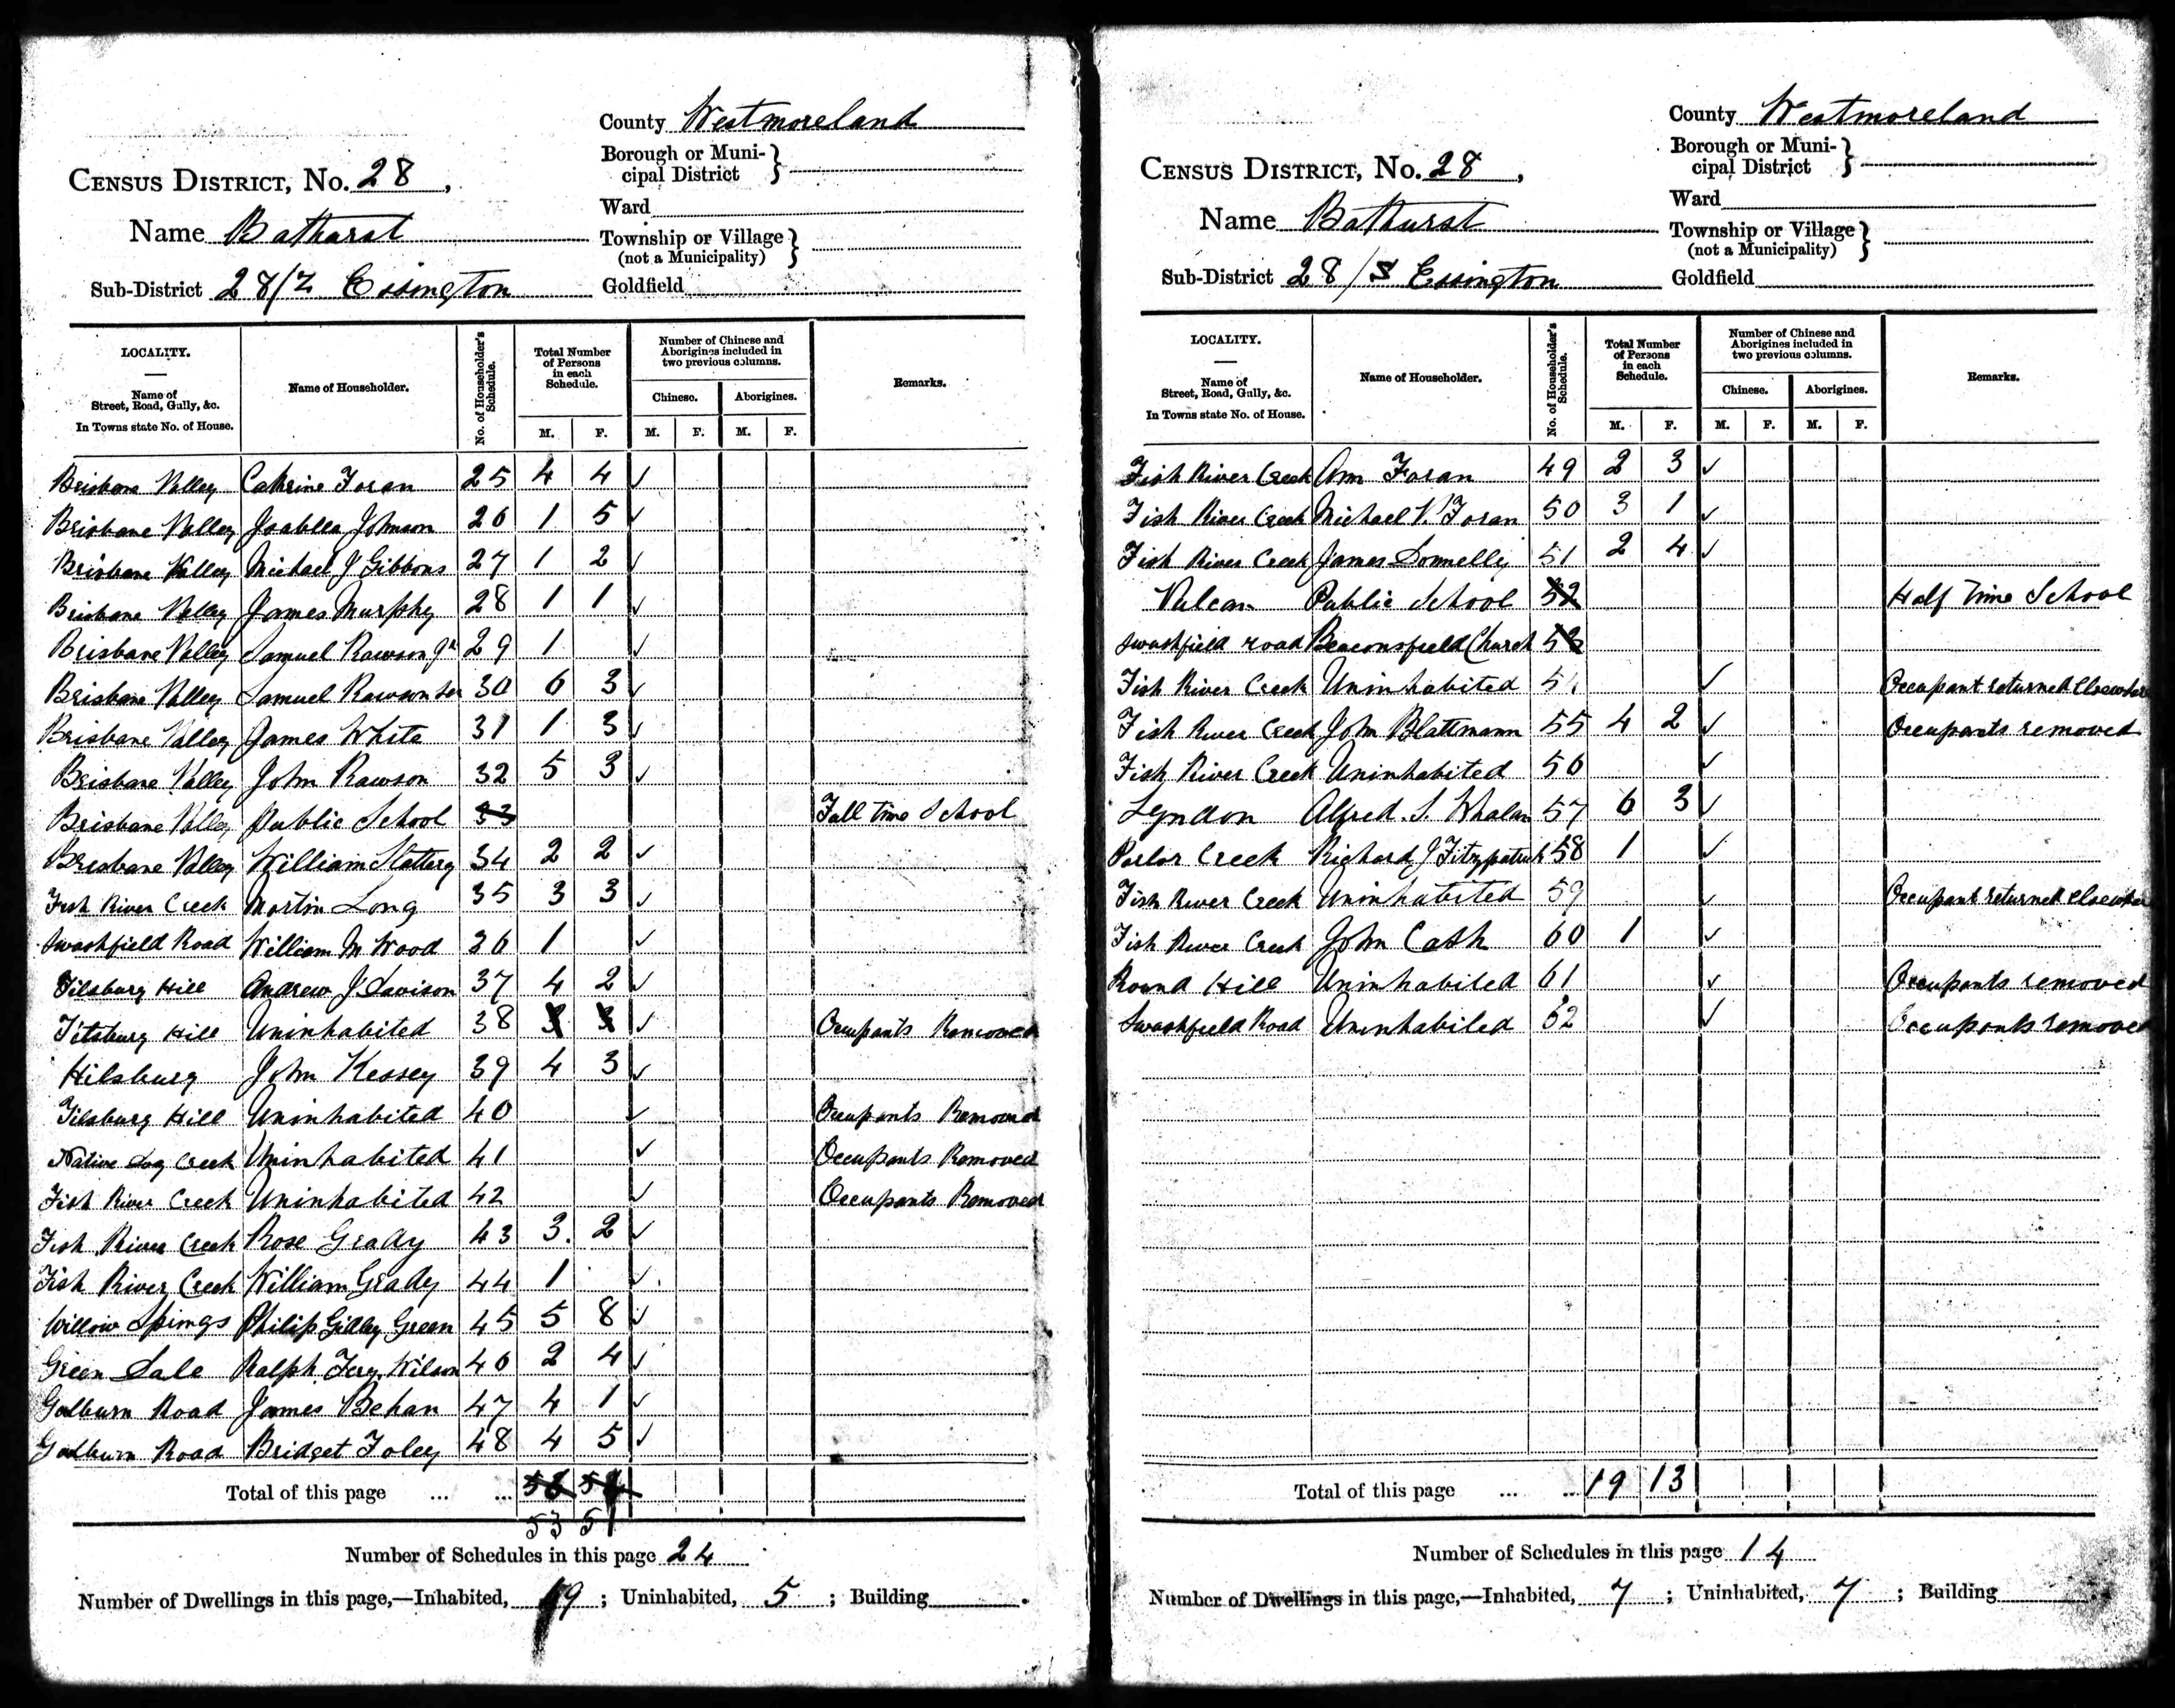 County Westmoreland
Borough or Muni-
cipal District }
CENSUS DISTRICT, No. 28,
Ward
Name Bathurst
Township or Village
(not a Municipality) }
Sub-District 28/2 Essington
Goldfield
LOCALITY.
Name of
Street, Road, Gully, &c.
In Towns state No. of House.
Name of Householder.
No. of Householder's
Schedule.
Total Number
of Persons
in each
Schedule.
M. F.
Number of Chinese and
Aborigines included in
two previous columns.
Chinese. Aborigines.
M. F. M. F.
Remarks.
Brisbane Valley Cahrine Foran 25 4 4 ✓
Brisbane Valley Isablea Johnson 26 1 5 ✓
Brisbane Valley Michael J Gibbons 27 1 2 ✓
Brisbane Valley James Murphy 28 1 1 ✓
Brisbane Valley Samuel Rawson Jr 29 1 ✓
Brisbane Valley Samuel Rawson Sen 30 6 3 ✓
Brisbane Valley James White 31 1 3 ✓
Brisbane Valley John Rawson 32 5 3 ✓
Brisbane Valley Public School 33 Full time School
Brisbane Valley William Slattery 34 2 2 ✓
Fish River Creek Martin Long 35 3 3 ✓
Swashfield Road William M Wood 36 1 ✓
Tilsbury Hill Andrew J Davison 37 4 2 ✓
Titsbury Hill Uninhabited 38 3 3 ✓ Occupants Removed
Hilsbury John Kessey 39 4 3 ✓
Tilsbury Hill Uninhabited 40 ✓ Occupants Removed
Native Dog Creek Uninhabited 41 ✓ Occupants Removed
Fish River Creek Uninhabited 42 ✓ Occupants Removed
Fish River Creek Rose Grady 43 3 2 ✓
Fish River Creek William Grady 44 1 ✓
Willow Springs Philip Gidley Green 45 5 8 ✓
Green Dale Ralph Wilson 46 2 4 ✓
Goulburn Road James Behan 47 4 1 ✓
Goulburn Road Bridget Foley 48 4 5 ✓
Total of this page ... ... 56 54
53 51
Number of Schedules in this page 24
Number of Dwellings in this page,—Inhabited, 19 ; Uninhabited, 5 ; Building .
County Westmoreland
Borough or Muni-
cipal District }
CENSUS DISTRICT, No. 28,
Ward
Name Bathurst
Township or Village
(not a Municipality) }
Sub-District 28/ Essington
Goldfield
LOCALITY.
Name of
Street, Road, Gully, &c.
In Towns state No. of House.
Name of Householder.
No. of Householder's
Schedule.
Total Number
of Persons
in each
Schedule.
M. F.
Number of Chinese and
Aborigines included in
two previous columns.
Chinese. Aborigines.
M. F. M. F.
Remarks.
Fish River Creek Ann Foran 49 2 3 ✓
Fish River Creek Michael V. Foran 50 3 1 ✓
Fish River Creek James Donnelly 51 2 4 ✓
Vulcan Public School 52 Half Time School
Swashfield road Beaconsfield Church 53
Fish River Creek Uninhabited 54 ✓ Occupant returned Elsewhere
Fish River Creek John Blattmann 55 4 2 ✓ Occupants removed
Fish River Creek Uninhabited 56 ✓
Lyndon Alfred. S. Whalan 57 6 3 ✓
Parlor Creek Richard J Fitzpatrick 58 1 ✓
Fish River Creek Uninhabited 59 ✓ Occupant returned elsewhere
Fish River Creek John Cash 60 1 ✓
Round Hill Uninhabited 61 ✓ Occupants removed
Swashfield Road Uninhabited 62 ✓ Occupants removed
Total of this page ... ... 19 13
Number of Schedules in this page 14
Number of Dwellings in this page,—Inhabited, 7 ; Uninhabited, 7 ; Building